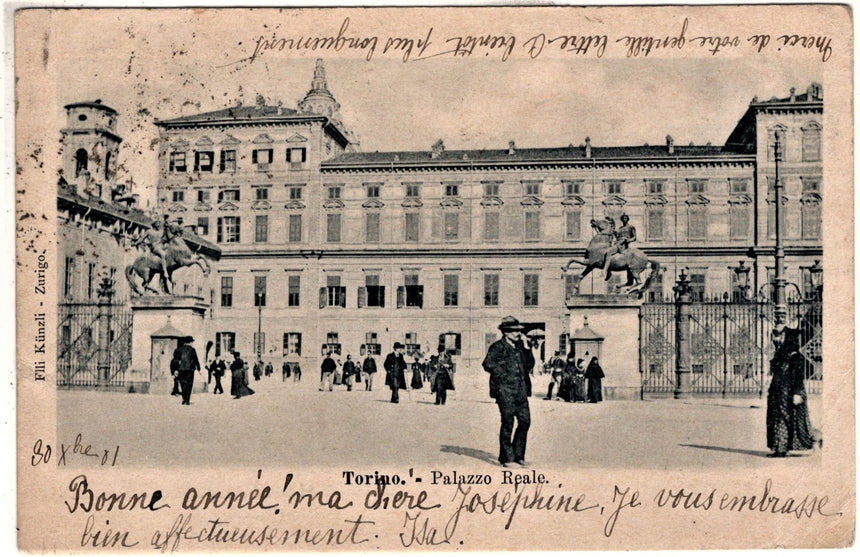 Merci de votre gentille lettre à bientôt plus longuement
Flli Künzli - Zurigo.
30 Xbre 01
Torino. - Palazzo Reale.
Bonne année! ma chère Joséphine, Je vous embrasse
bien affectueusement. Isa.